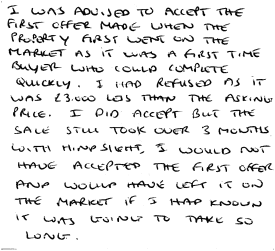 I WAS ADVISED TO ACCEPT THE
FIRST OFFER MADE WHEN THE
PROPERTY FIRST WENT ON THE
MARKET AS IT WAS A FIRST TIME
BUYER WHO COULD COMPLETE
QUICKLY. I HAD REFUSED AS IT
WAS £3.000 LESS THAN THE ASKING
PRICE. I DID ACCEPT BUT THE
SALE STILL TOOK OVER 3 MONTHS
WITH HINDSIGHT, I WOULD NOT
HAVE ACCEPTED THE FIRST OFFER
AND WOULD HAVE LEFT IT ON
THE MARKET IF I HAD KNOWN
IT WAS GOING TO TAKE SO
LONG.